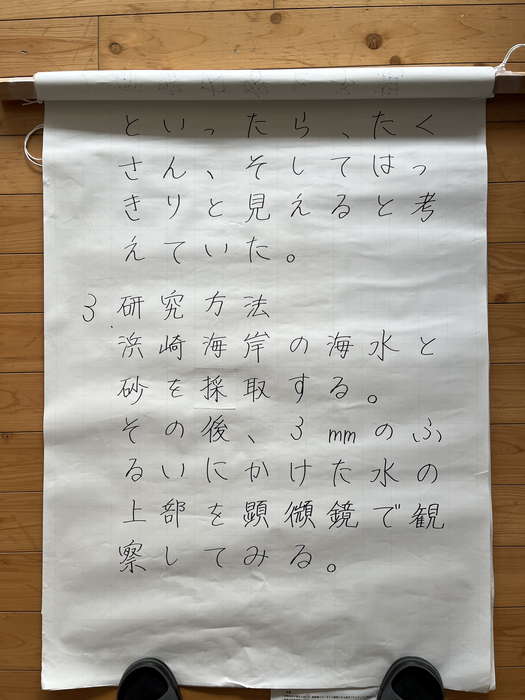 といったら、たく
さん、そしてはっ
きりと見えると考
えていた。
3.研究方法
浜崎海岸の海水と
砂を採取する。
その後、3mmのふ
るいにかけた水の
上部を顕微鏡で観
察してみる。